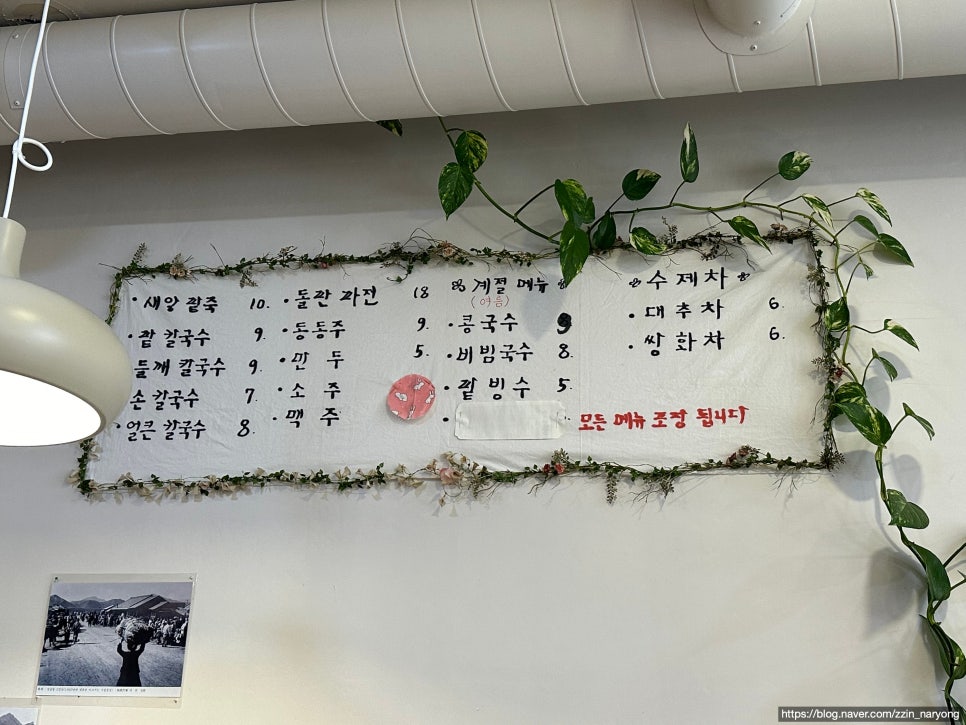 • 새알 팥죽 10.
• 팥 칼국수 9.
들깨 칼국수 9.
손 칼국수 7.
• 얼큰 칼국수 8.
• 돌판 파전 18
• 동동주 9.
• 만 두 5.
• 소 주
• 맥 주
계절 메뉴
(여름)
• 콩국수 9
• 비빔국수 8.
• 팥 빙수 5.
수제차
• 대추차 6.
• 쌍화차 6.
모든 메뉴 포장 됩니다
https://blog.naver.com/zzin_naryong